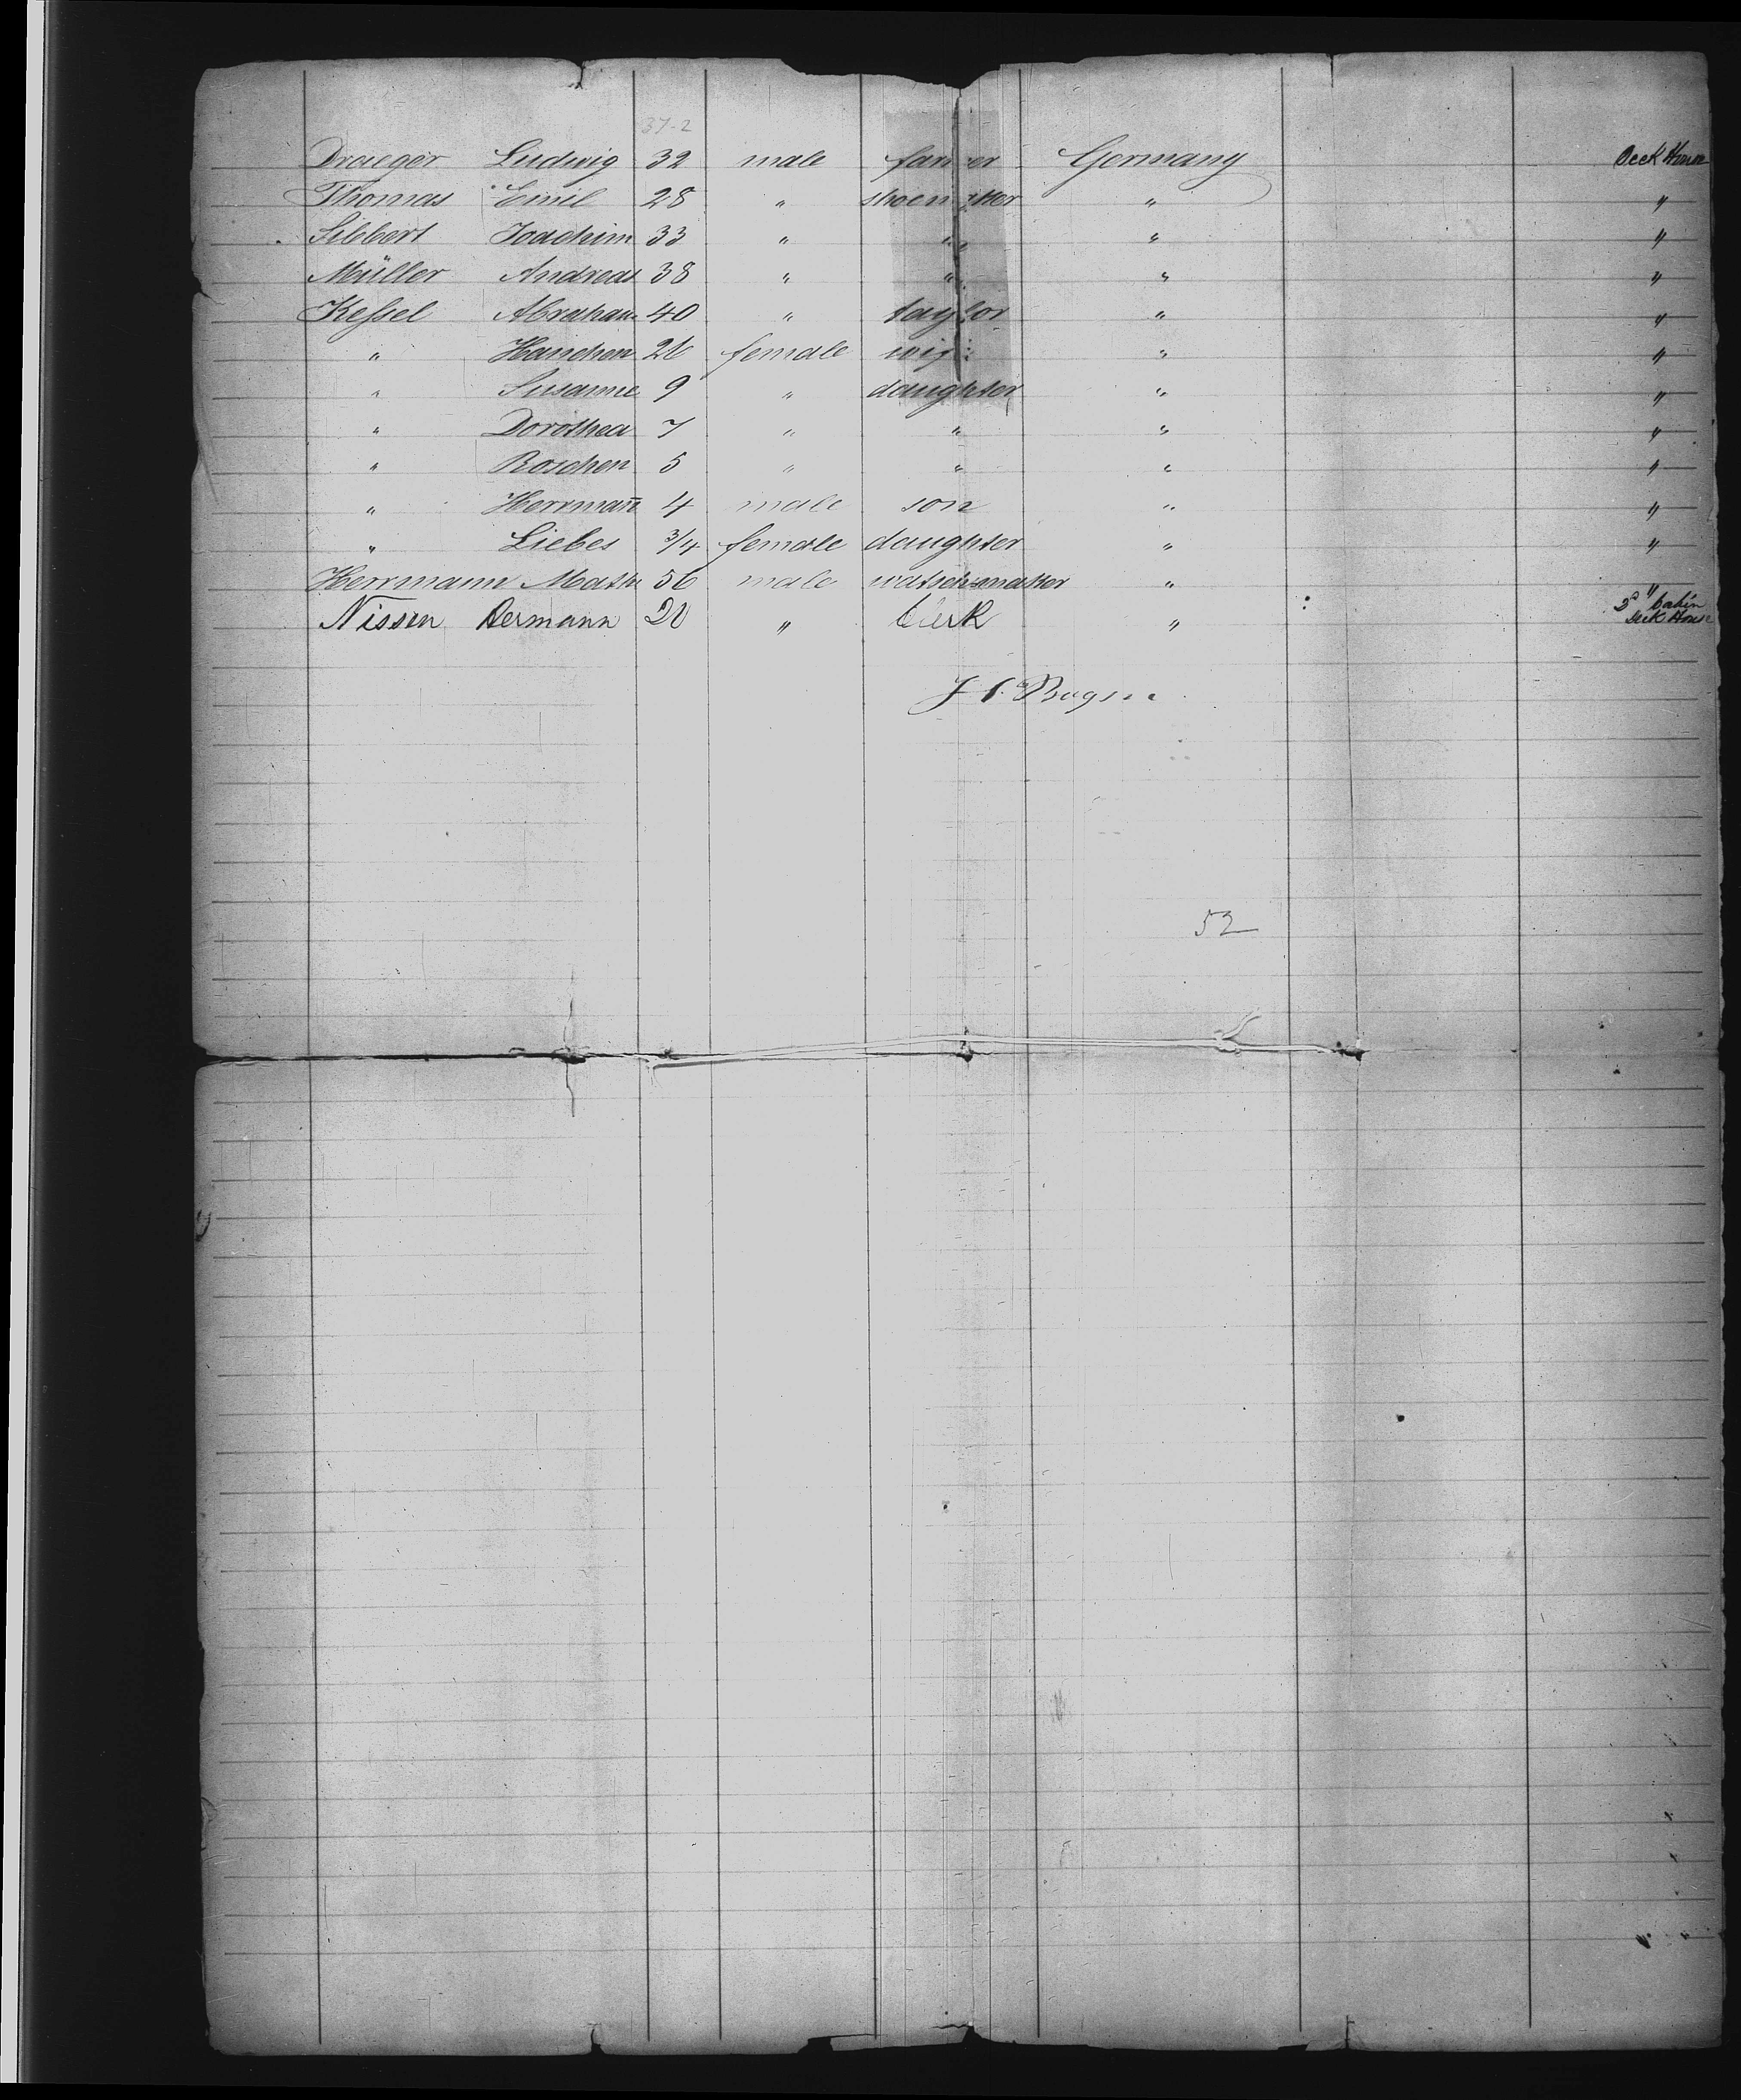 37-2
Draeger Ludwig 32 male farmer Germany Deck House
Thomas Emil 28 " shoemaker " "
Sibbert Joachim 33 " " " "
Müller Andreas 38 " " " "
Keſsel Abraham 40 " taylor " "
" Hanchen 26 female wife " "
" Susanne 9 " daughter " "
" Dorothea 7 " " " "
" Roschen 5 " " " "
" Herrman̄ 4 male son " "
" Liebes 3/4 female daughter " "
Herrmann Math 56 male watschmaker " "
Nissen Hermann 20 " Clerk " 2d Cabin Deck House
52